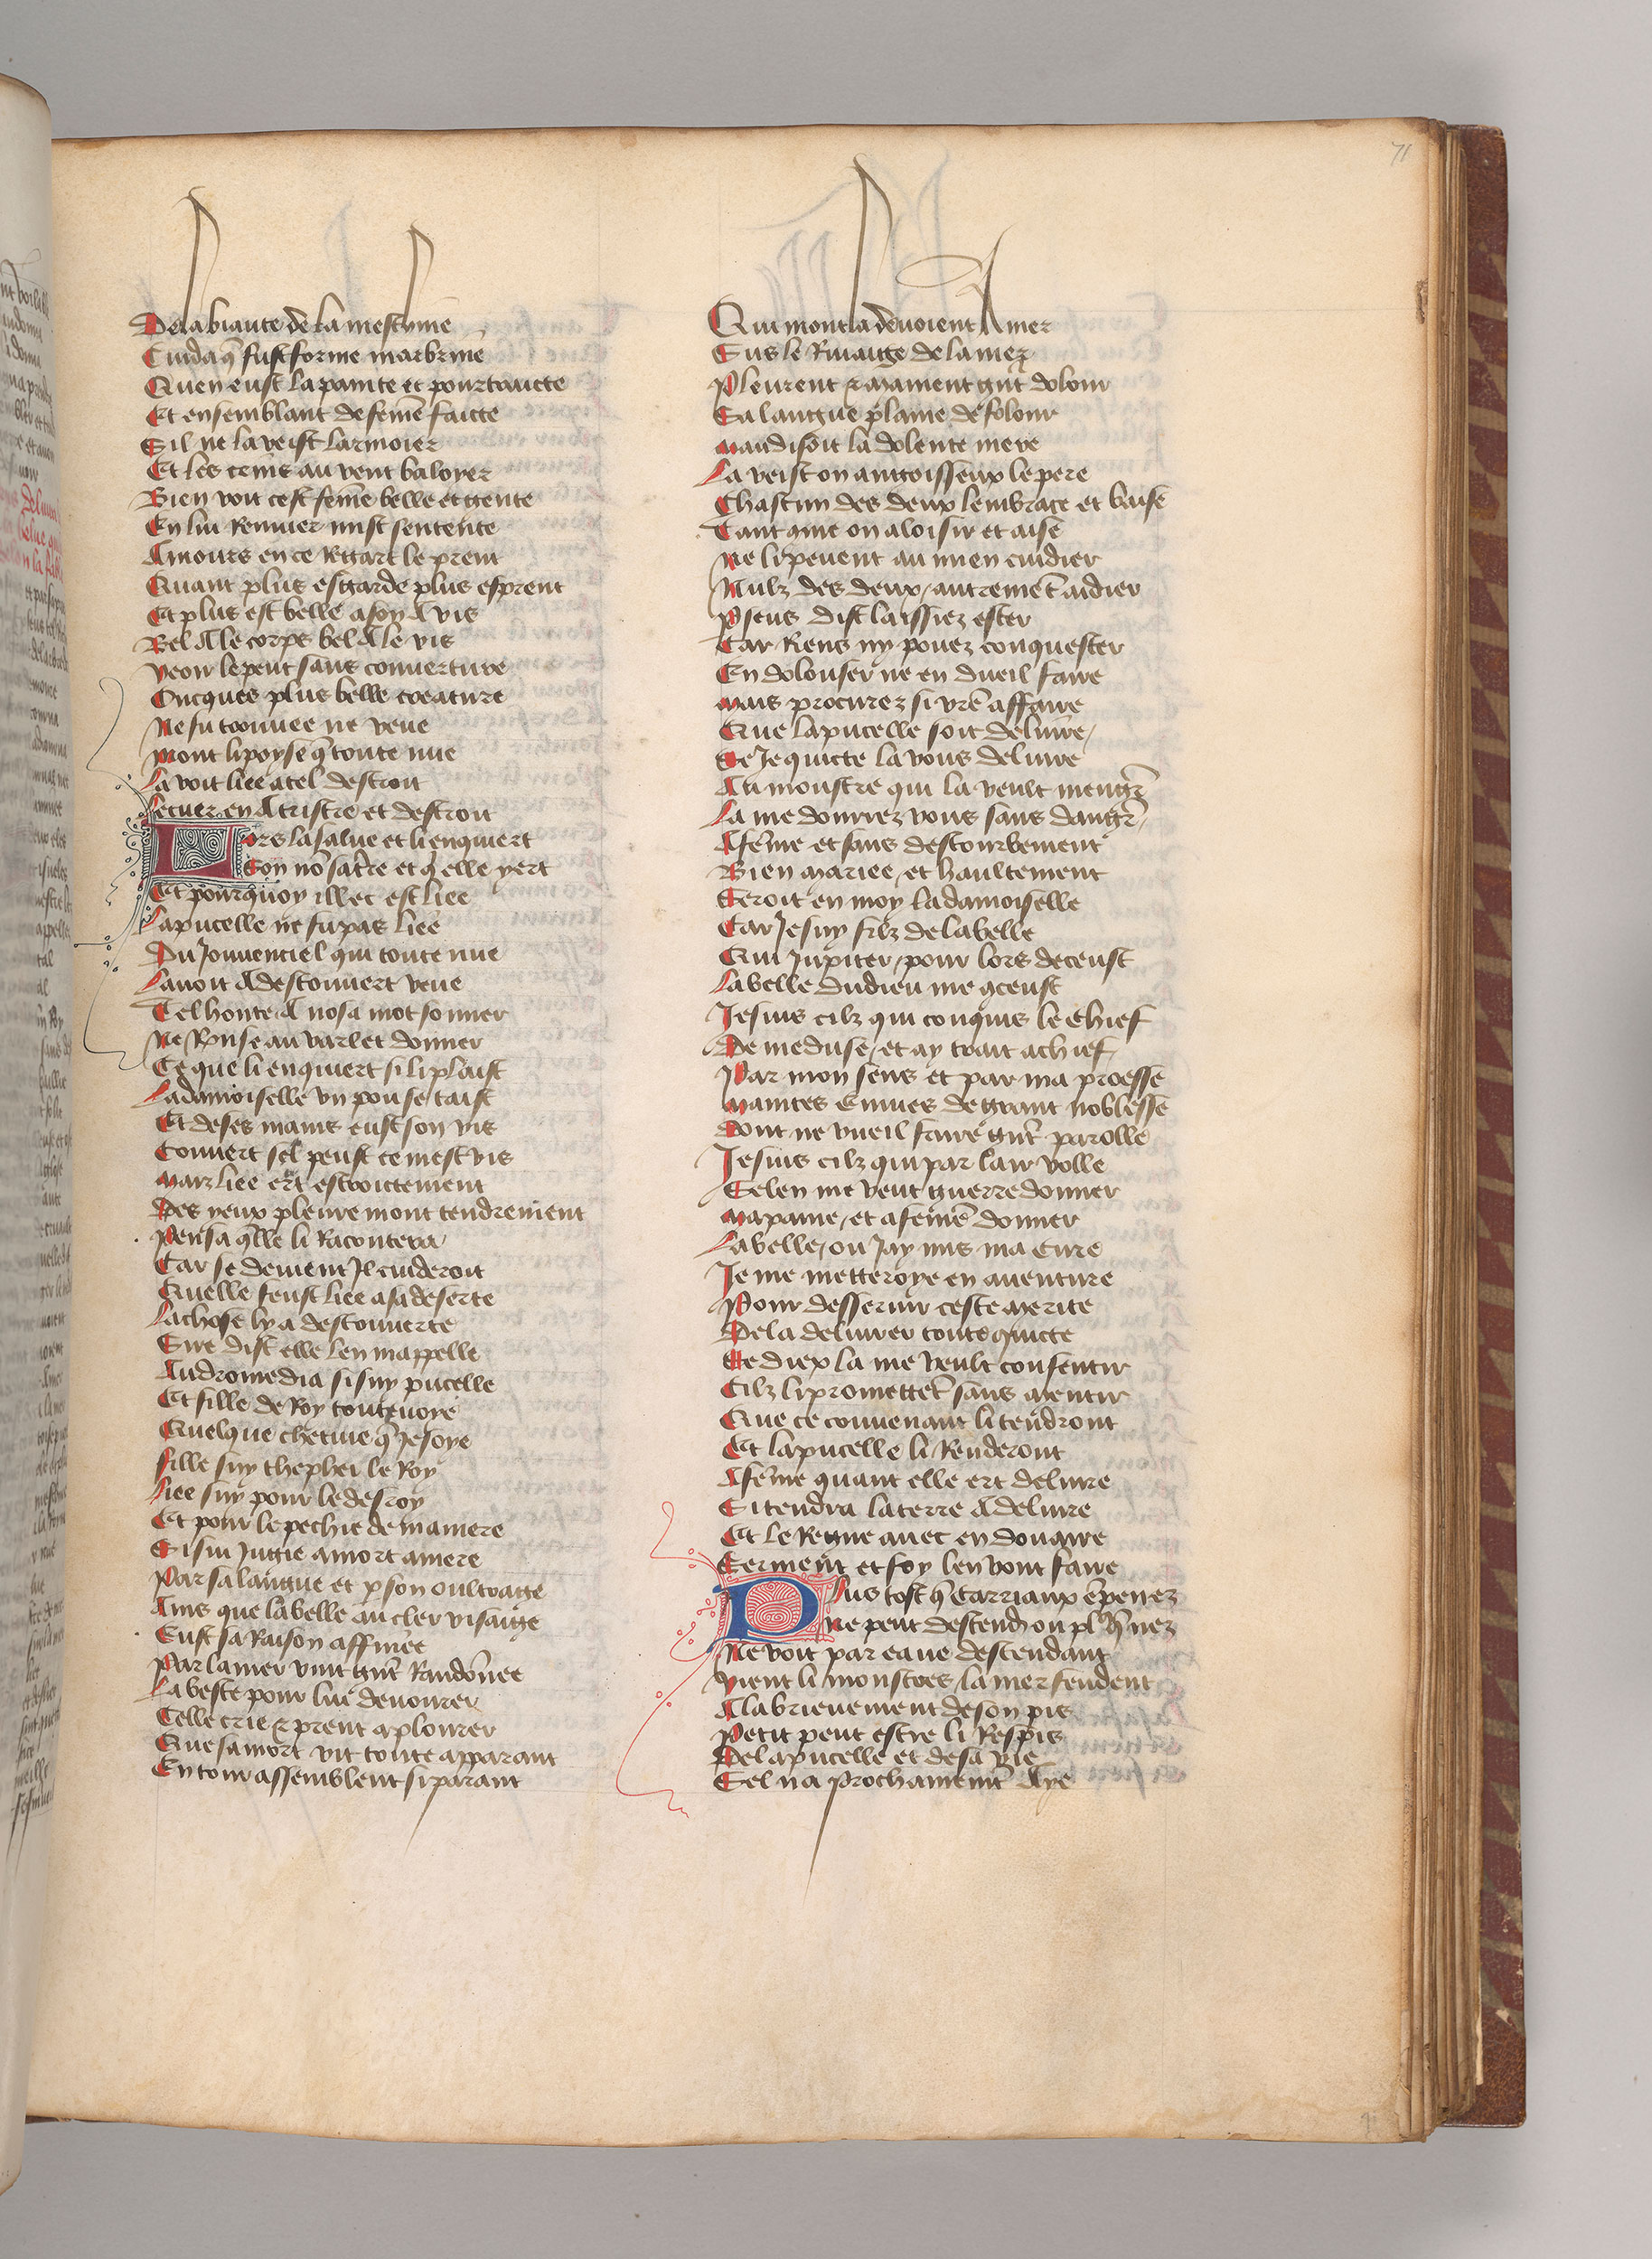 71
De la biaute de la meschine
Cuida q̃ fust forme marbrine
Quen eust la painte et pourtraicte
Et en semblant de feme faicte
Sil ne la veist larmoier
Et les crins au vent baloyer
Bien voit cest feme belle et gente
En lui remirer mist sentente
Amours en ce regart le prent
Quant plus esgarde plus esprent
Et plus est belle a son Avis
Bel A le corps bel A le vis
Veoir le peut sans couverture
Oncques plus belle creature
Ne fu trouvee ne veue
Mont li poyse q̃ toute nue
La voit liee a tel destroit
Le cuer en A tristre et destroit
Lors la salue et li enquiert
Son nõ sa tr̃e et q̃ elle quert
Et pourquoy illec est liee
La pucelle ne fu pas liee
Du Jouvencel qui toute nue
Lavoit A descouvert veue
Tel honte A nosa mot sonner
Ne Responce au varlet donner
Ce que li enquiert si li plaist
La damoiselle un pou se taist
Et de ses mains eust son vis
Couvert sel peust ce mest vis
Maiz liee ert estroictement
Des yeux pleure mont tendrement
Pensa q̃lle li Racontera
Car se devient Il cuideroit
Quelle feust liee a sa deserte
La chose ly a descouverte
Sire dist elle len mappelle
Andromedia si suy pucelle
Et fille de Roy toutevoye
Quelque chetive q̃ Je soye
Fille suy thephei le Roy
Liee suy pour le desroy
Et pour le pechie de ma mere
Si sui Jugie a mort amere
Par sa langue et p son oultrage
Ains que la belle au cler visaige
Eust sa Raison affinee
Par la mer vint gñt Randõnee
La beste pour lui devourer
Celle crie et prent a plourer
Que sa mort vit toute apparant
Entour assemblent si parant
Qui mont la devoient Amer
Sus le Rivaige de la mer
Pleurent et mainent gñt dolour
Sa langue plaine de folour
Maudisoit la dolente mere
La veist on angoisseux le pere
Chascun des deux lembrace et baise
Tant que on a loisir et aise
Ne li peuent au mien cuidier
Nulz des deux autremẽt aidier
Pseus dist laissiez ester
Car Riens ny pouez conquester
En doulouser ne en dueil faire
Mais procurez si vr̃e affaire
Que la pucelle soit delivre
Se Je quicte la vous delivre
Au monstre qui la veult mengr̃
La me donrrez vous sans dangr̃
A feme et sans destourbement
Bien mariee et haultement
Seroit en moy la damoiselle
Car Je suy filz de la belle
Qui Jupiter pour lors deceust
La belle du dieu me conceust
Je suis cilz qui conquis le Chief
De meduse et ay trait a chief
Par mon sens et par ma proesse
Maintes Euvres de grant noblesse
Dont ne vueil faire gñt parolle
Je suis cilz qui par lair volle
Se len me veut guerredonner
Ma paine et a femẽ donner
La belle ou Jay mis ma Cure
Je me metteroye en aventure
Pour desservir ceste merite
De la delivrer toute quicte
Se diex la me veult consentir
Cilz li promettẽt sans mentir
Que ce convenant li tendront
Et la pucelle li Renderont
A feme quant elle ert delivre
Si tendra la terre A delivre
Et le Regne avec en douaire
Serment et foy len vont faire
Plus tost q̃ Carriaux ẽpenez
Ne peut descendr̃ ou pl
Ne voit par eaue descendant
Vient li monstres la mer fendent
A la brievement de son pis
Petit peut estre li Respis
De la pucelle et de sa vie
Sel na prochainemẽt Aye